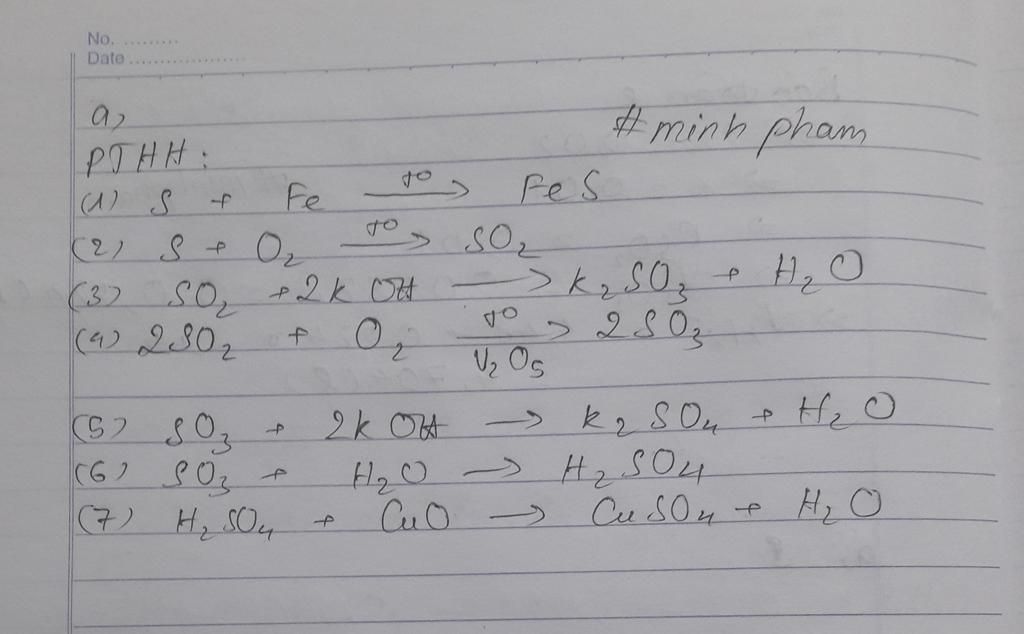 No. .........
Date ....................
a,
# minh pham
PTHH:
(1) S + Fe \xrightarrow{t^o} FeS
(2) S + O₂ \xrightarrow{t^o} SO₂
(3) SO₂ + 2KOH → K₂SO₃ + H₂O
(4) 2SO₂ + O₂ \xrightarrow[V₂O₅]{t^o} 2SO₃
(5) SO₃ + 2KOH → K₂SO₄ + H₂O
(6) SO₃ + H₂O → H₂SO₄
(7) H₂SO₄ + CuO → CuSO₄ + H₂O